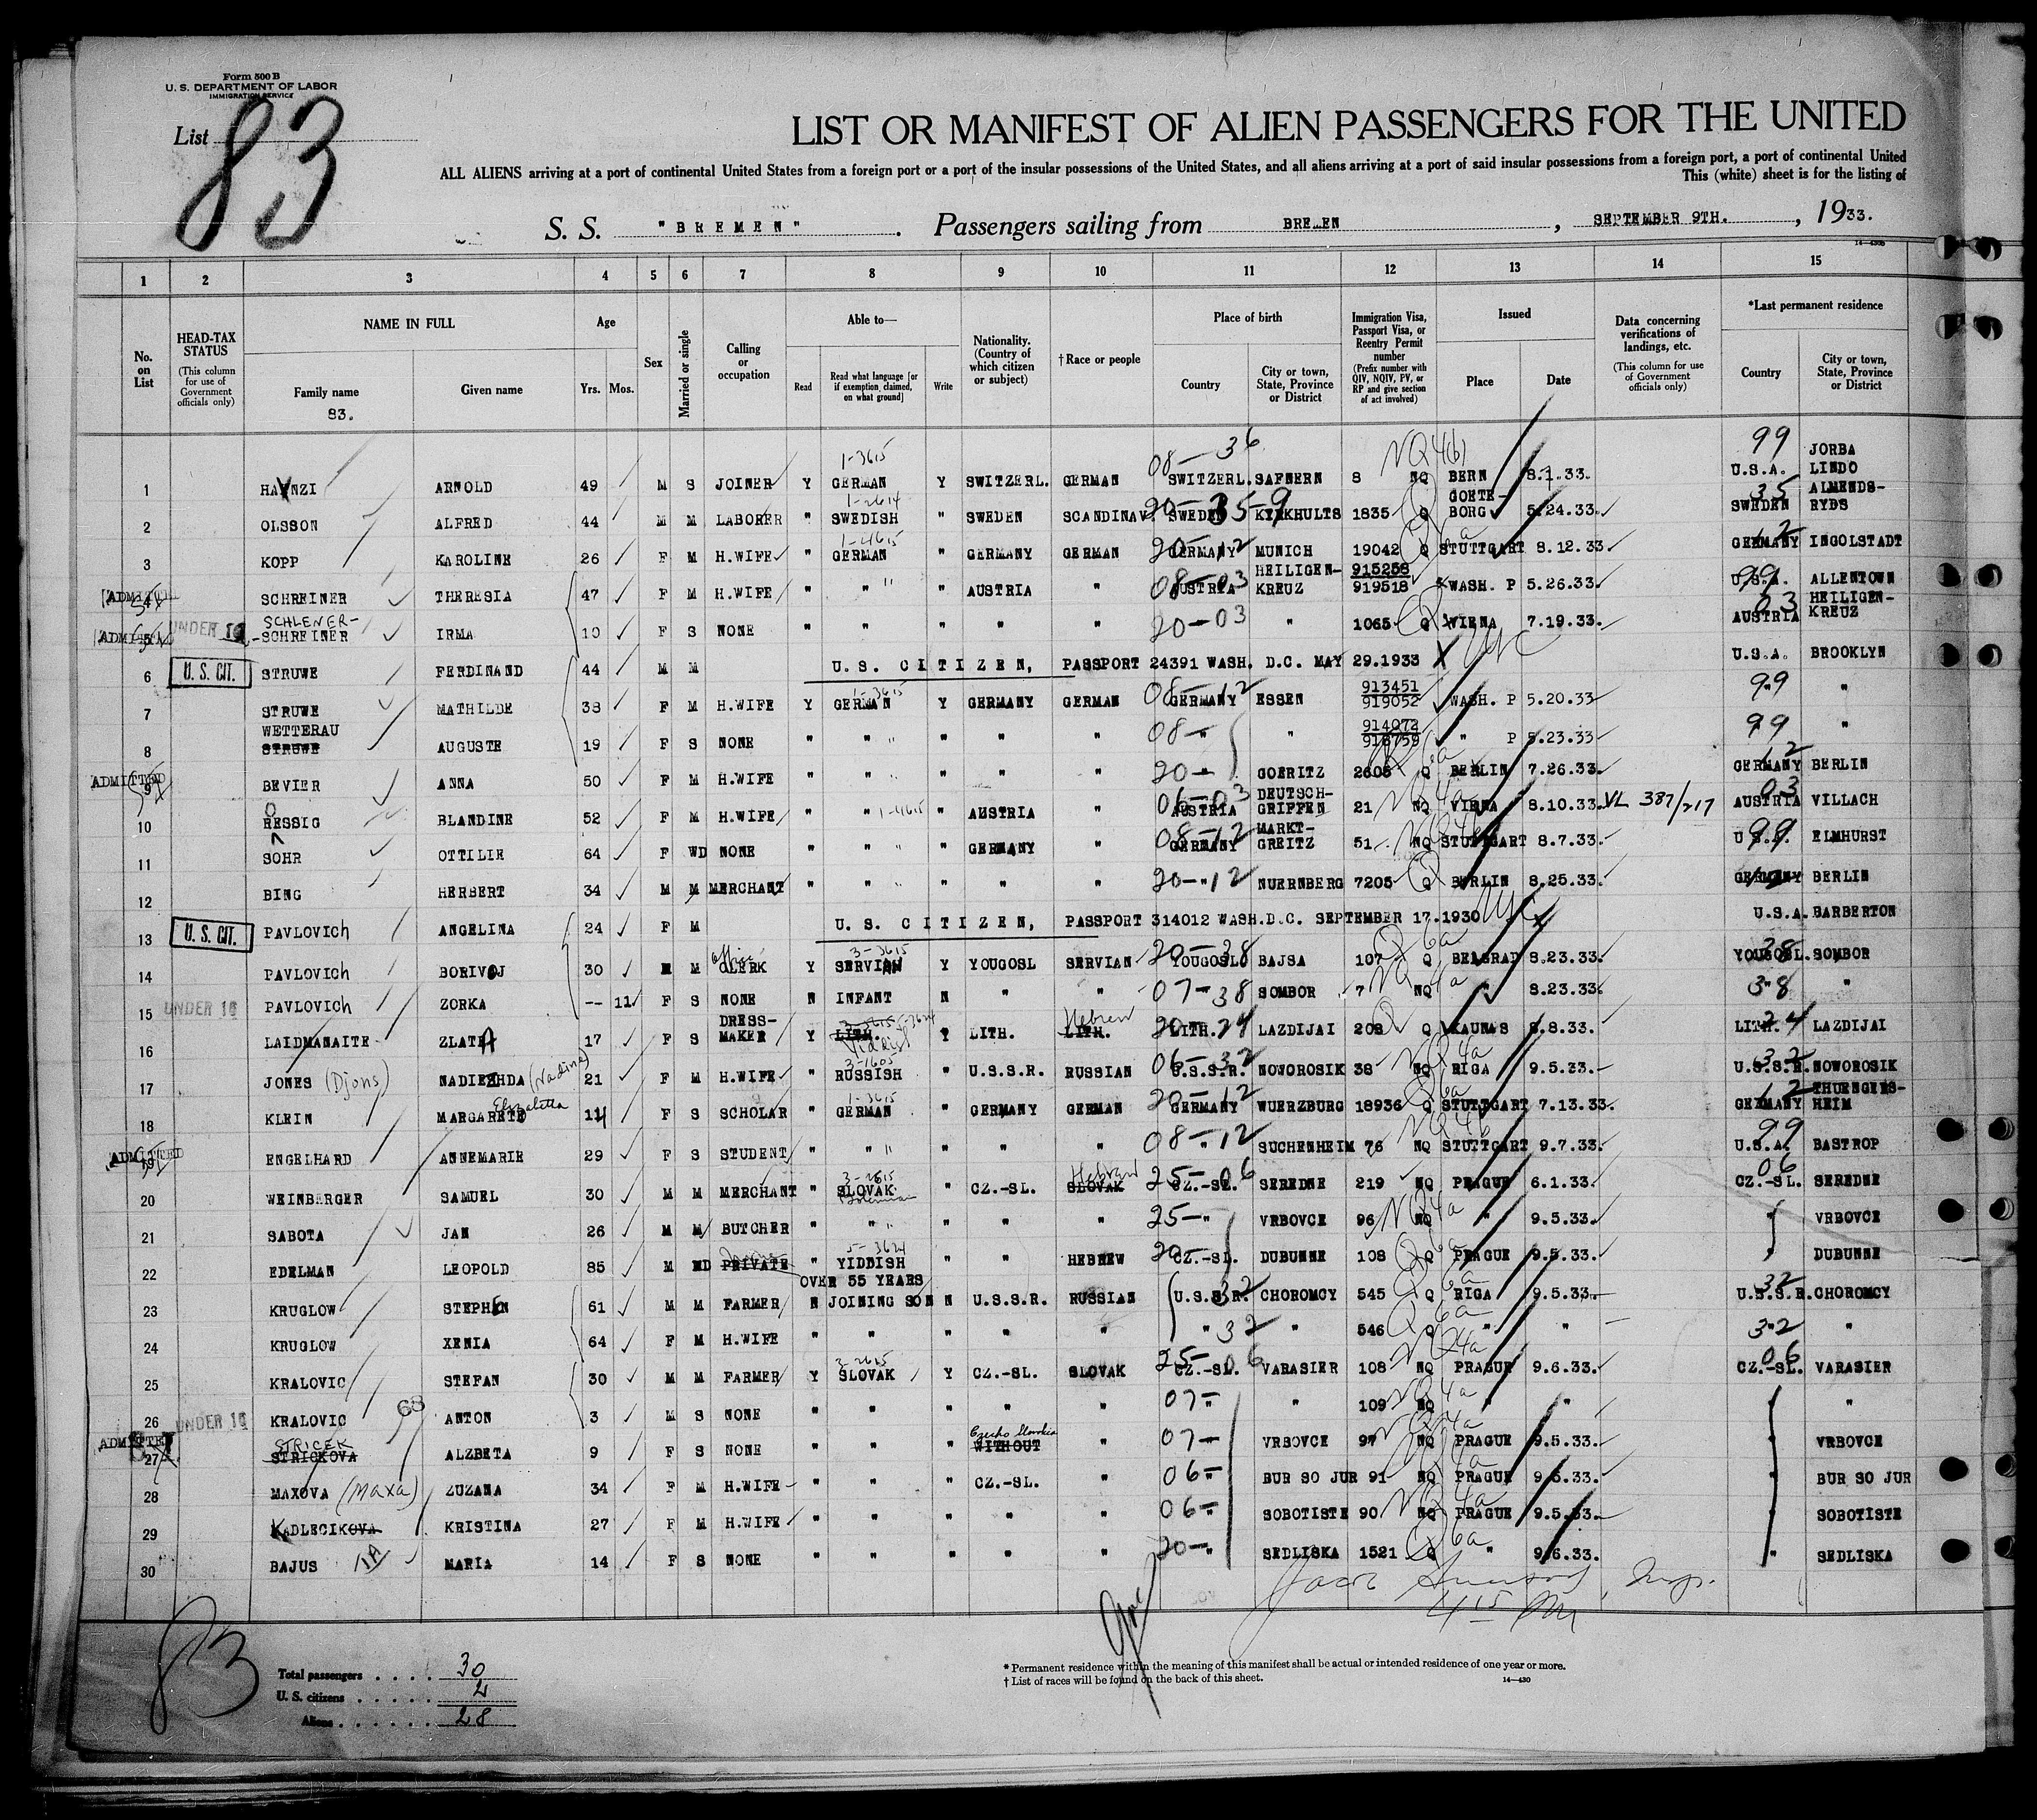 Form 500 B
U. S. DEPARTMENT OF LABOR
IMMIGRATION SERVICE
List 83
LIST OR MANIFEST OF ALIEN PASSENGERS FOR THE UNITED
ALL ALIENS arriving at a port of continental United States from a foreign port or a port of the insular possessions of the United States, and all aliens arriving at a port of said insular possessions from a foreign port, a port of continental United
This (white) sheet is for the listing of
S. S. "BREMEN" . Passengers sailing from BREMEN , SEPTEMBER 9TH. , 1933.
14—430B
1 2 3 4 5 6 7 8 9 10 11 12 13 14 15
No. on List
HEAD-TAX STATUS (This column for use of Government officials only)
NAME IN FULL
Family name
83.
Given name
Age
Yrs. Mos.
Sex
Married or single
Calling or occupation
Able to—
Read
Read what language [or if exemption claimed, on what ground]
Write
Nationality. (Country of which citizen or subject)
†Race or people
Place of birth
Country
City or town, State, Province or District
Immigration Visa, Passport Visa, or Reentry Permit number (Prefix number with QIV, NQIV, PV, or RP and give section of act involved)
Issued
Place
Date
Data concerning verifications of landings, etc. (This column for use of Government officials only)
*Last permanent residence
Country
City or town, State, Province or District
1 ARNOLD 49 M S JOINER Y GERMAN 1-3615 Y SWITZERL. GERMAN 08-36 SWITZERL. SAFNERN 8 NQ BERN 8.1.33. 99 U.S.A. JORBA LINDO
2 OLSSON ALFRED 44 M M LABORER " SWEDISH 1-2614 " SWEDEN SCANDINAV. SWEDEN KYRKHULTS 1835 Q GOETE-BORG 5.24.33. 35 SWEDEN ALMENDS-RYDS
3 KOPP KAROLINE 26 F M H.WIFE " GERMAN 1-4615 " GERMANY GERMAN 20-12 GERMANY MUNICH 19042 Q STUTTGART 8.12.33. 12 GERMANY INGOLSTADT
ADMITTED 4 SCHREINER THERESIA 47 F M H.WIFE " " " AUSTRIA " 08-03 AUSTRIA HEILIGEN-KREUZ 915258 919518 WASH. P 5.26.33. 99 U.S.A. ALLENTOWN
ADMITTED 5 UNDER 16 SCHLENER- SCHREINER IRMA 10 F S NONE " " " " " 20-03 " 1065 Q VIENA 7.19.33. 03 AUSTRIA HEILIGEN-KREUZ
6 U. S. CIT. STRUWE FERDINAND 44 M M U.S. CITIZEN, PASSPORT 24391 WASH. D.C. MAY 29.1933 U.S.A. BROOKLYN
7 STRUWE MATHILDE 38 F M H.WIFE Y GERMAN 1-3615 Y GERMANY GERMAN 08-12 GERMANY ESSEN 913451 919052 WASH. P 5.20.33 99 " "
8 WETTERAU STRUWE AUGUSTE 19 F S NONE " " " " " 08- " " 914073 918759 " P 5.23.33 99 "
ADMITTED 9 BEVIER ANNA 50 F M H.WIFE " " " " " 20- " GOERITZ 2605 Q BERLIN 7.26.33. 12 GERMANY BERLIN
10 RESSIG BLANDINE 52 F M H.WIFE " " 1-4615 " AUSTRIA " 06-03 AUSTRIA DEUTSCH-GRIFFEN 21 NQ VIENA 8.10.33. VL 387/217 03 AUSTRIA VILLACH
11 SOHR OTTILIE 64 F WD NONE " " " GERMANY " 08-12 GERMANY MARKT-GREITZ 51 NQ STUTTGART 8.7.33. 99 U.S.A. ELMHURST
12 BING HERBERT 34 M M MERCHANT " " " " " 20-12 " NUERNBERG 7205 Q BERLIN 8.25.33. GERMANY BERLIN
13 U. S. CIT. PAVLOVICh ANGELINA 24 F M U.S. CITIZEN, PASSPORT 314012 WASH.D.C. SEPTEMBER 17.1930 U.S.A. BARBERTON
14 PAVLOVICh BORIVOJ 30 M M office CLERK Y SERVIAN 3-3615 Y YOUGOSL SERVIAN 20-38 YOUGOSL BAJSA 107 Q 6a BELGRAD 8.23.33. 38 YOUGOSL. SOMBOR
15 UNDER 16 PAVLOVICh ZORKA -- 11 F S NONE N INFANT N " " 07-38 SOMBOR 7 NQ 4a " 8.23.33. 38 " "
16 LAIDMANAITE ZLATA 17 F S DRESS-MAKER Y LITH. Yiddish Y LITH. LITH. Hebrew LITH. 24 LAZDIJAI 208 Q KAUNAS 8.8.33. 24 LITH. LAZDIJAI
17 JONES (Djons) NADIEZHDA (Nadine) 21 F M H.WIFE " RUSSISH 3-1605 " U.S.S.R. RUSSIAN 06-32 U.S.S.R. NOWOROSIK 38 NQ 4a RIGA 9.5.33. 32 U.S.S.R. NOWOROSIK
18 KLEIN MARGARETE Elizabetta 14 F S SCHOLAR " GERMAN 1-3615 " GERMANY GERMAN 20-12 GERMANY WUERZBURG 18936 Q 6a STUTTGART 7.13.33. 12 GERMANY THUENGERS-HEIM
ADMITTED 19 ENGELHARD ANNEMARIE 29 F S STUDENT " " " " " 08-12 " SUCHENHEIM 76 NQ 4b STUTTGART 9.7.33. 99 U.S.A. BASTROP
20 WEINBERGER SAMUEL 30 M M MERCHANT " SLOVAK 3-2615 " CZ.-SL. SLOVAK Hebrew 25-06 CZ.-SL. SEREDNE 219 NQ PRAGUE 6.1.33. 06 CZ.-SL. SEREDNE
21 SABOTA JAN 26 M M BUTCHER " " " " " 25- " VRBOVCE 96 NQ 4a " 9.5.33. " VRBOVCE
22 EDELMAN LEOPOLD 85 M WD PRIVATE " YIDDISH 5-3624 " " HEBREW 20- CZ.-SL. DUBUNNE 108 Q 6a PRAGUE 9.5.33. " DUBUNNE
23 KRUGLOW STEPHEN 61 M M FARMER N OVER 55 YEARS JOINING SON N U.S.S.R. RUSSIAN U.S.S.R. 32 CHOROMCY 545 Q 6a RIGA 9.5.33. 32 U.S.S.R. CHOROMCY
24 KRUGLOW XENIA 64 F M H.WIFE " " " " " " 32 " 546 Q 6a " " 32 " "
25 KRALOVIC STEFAN 30 M M FARMER Y SLOVAK 3-2615 Y CZ.-SL. SLOVAK 25-06 CZ.-SL. VARASIER 108 NQ 4a PRAGUE 9.6.33. 06 CZ.-SL. VARASIER
26 UNDER 16 KRALOVIC 68 ANTON 3 M S NONE " " " " " 07- " " 109 NQ 4a " " " "
ADMITTED 27 STRICEK STRICKOVA ALZBETA 9 F S NONE " " " WITHOUT Czecho Slovakia " 07- VRBOVCE 97 NQ 4a PRAGUE 9.5.33. " VRBOVCE
28 MAXOVA (Maxa) ZUZANA 34 F M H.WIFE " " " CZ.-SL. " 06- " BUR SO JUR 91 NQ 4a PRAGUE 9.5.33. " BUR SO JUR
29 KADLECIKOVA KRISTINA 27 F M H.WIFE " " " " " 06- " SOBOTISTE 90 NQ 4a PRAGUE 9.5.33. " SOBOTISTE
30 BAJUS MARIA 14 F S NONE " " " " " 20- " SEDLISKA 1521 Q 6a " 9.6.33. " SEDLISKA
83
Total passengers . . . . 30
U. S. citizens . . . . . 2
Aliens . . . . . . 28
* Permanent residence within the meaning of this manifest shall be actual or intended residence of one year or more.
† List of races will be found on the back of this sheet.
14—430